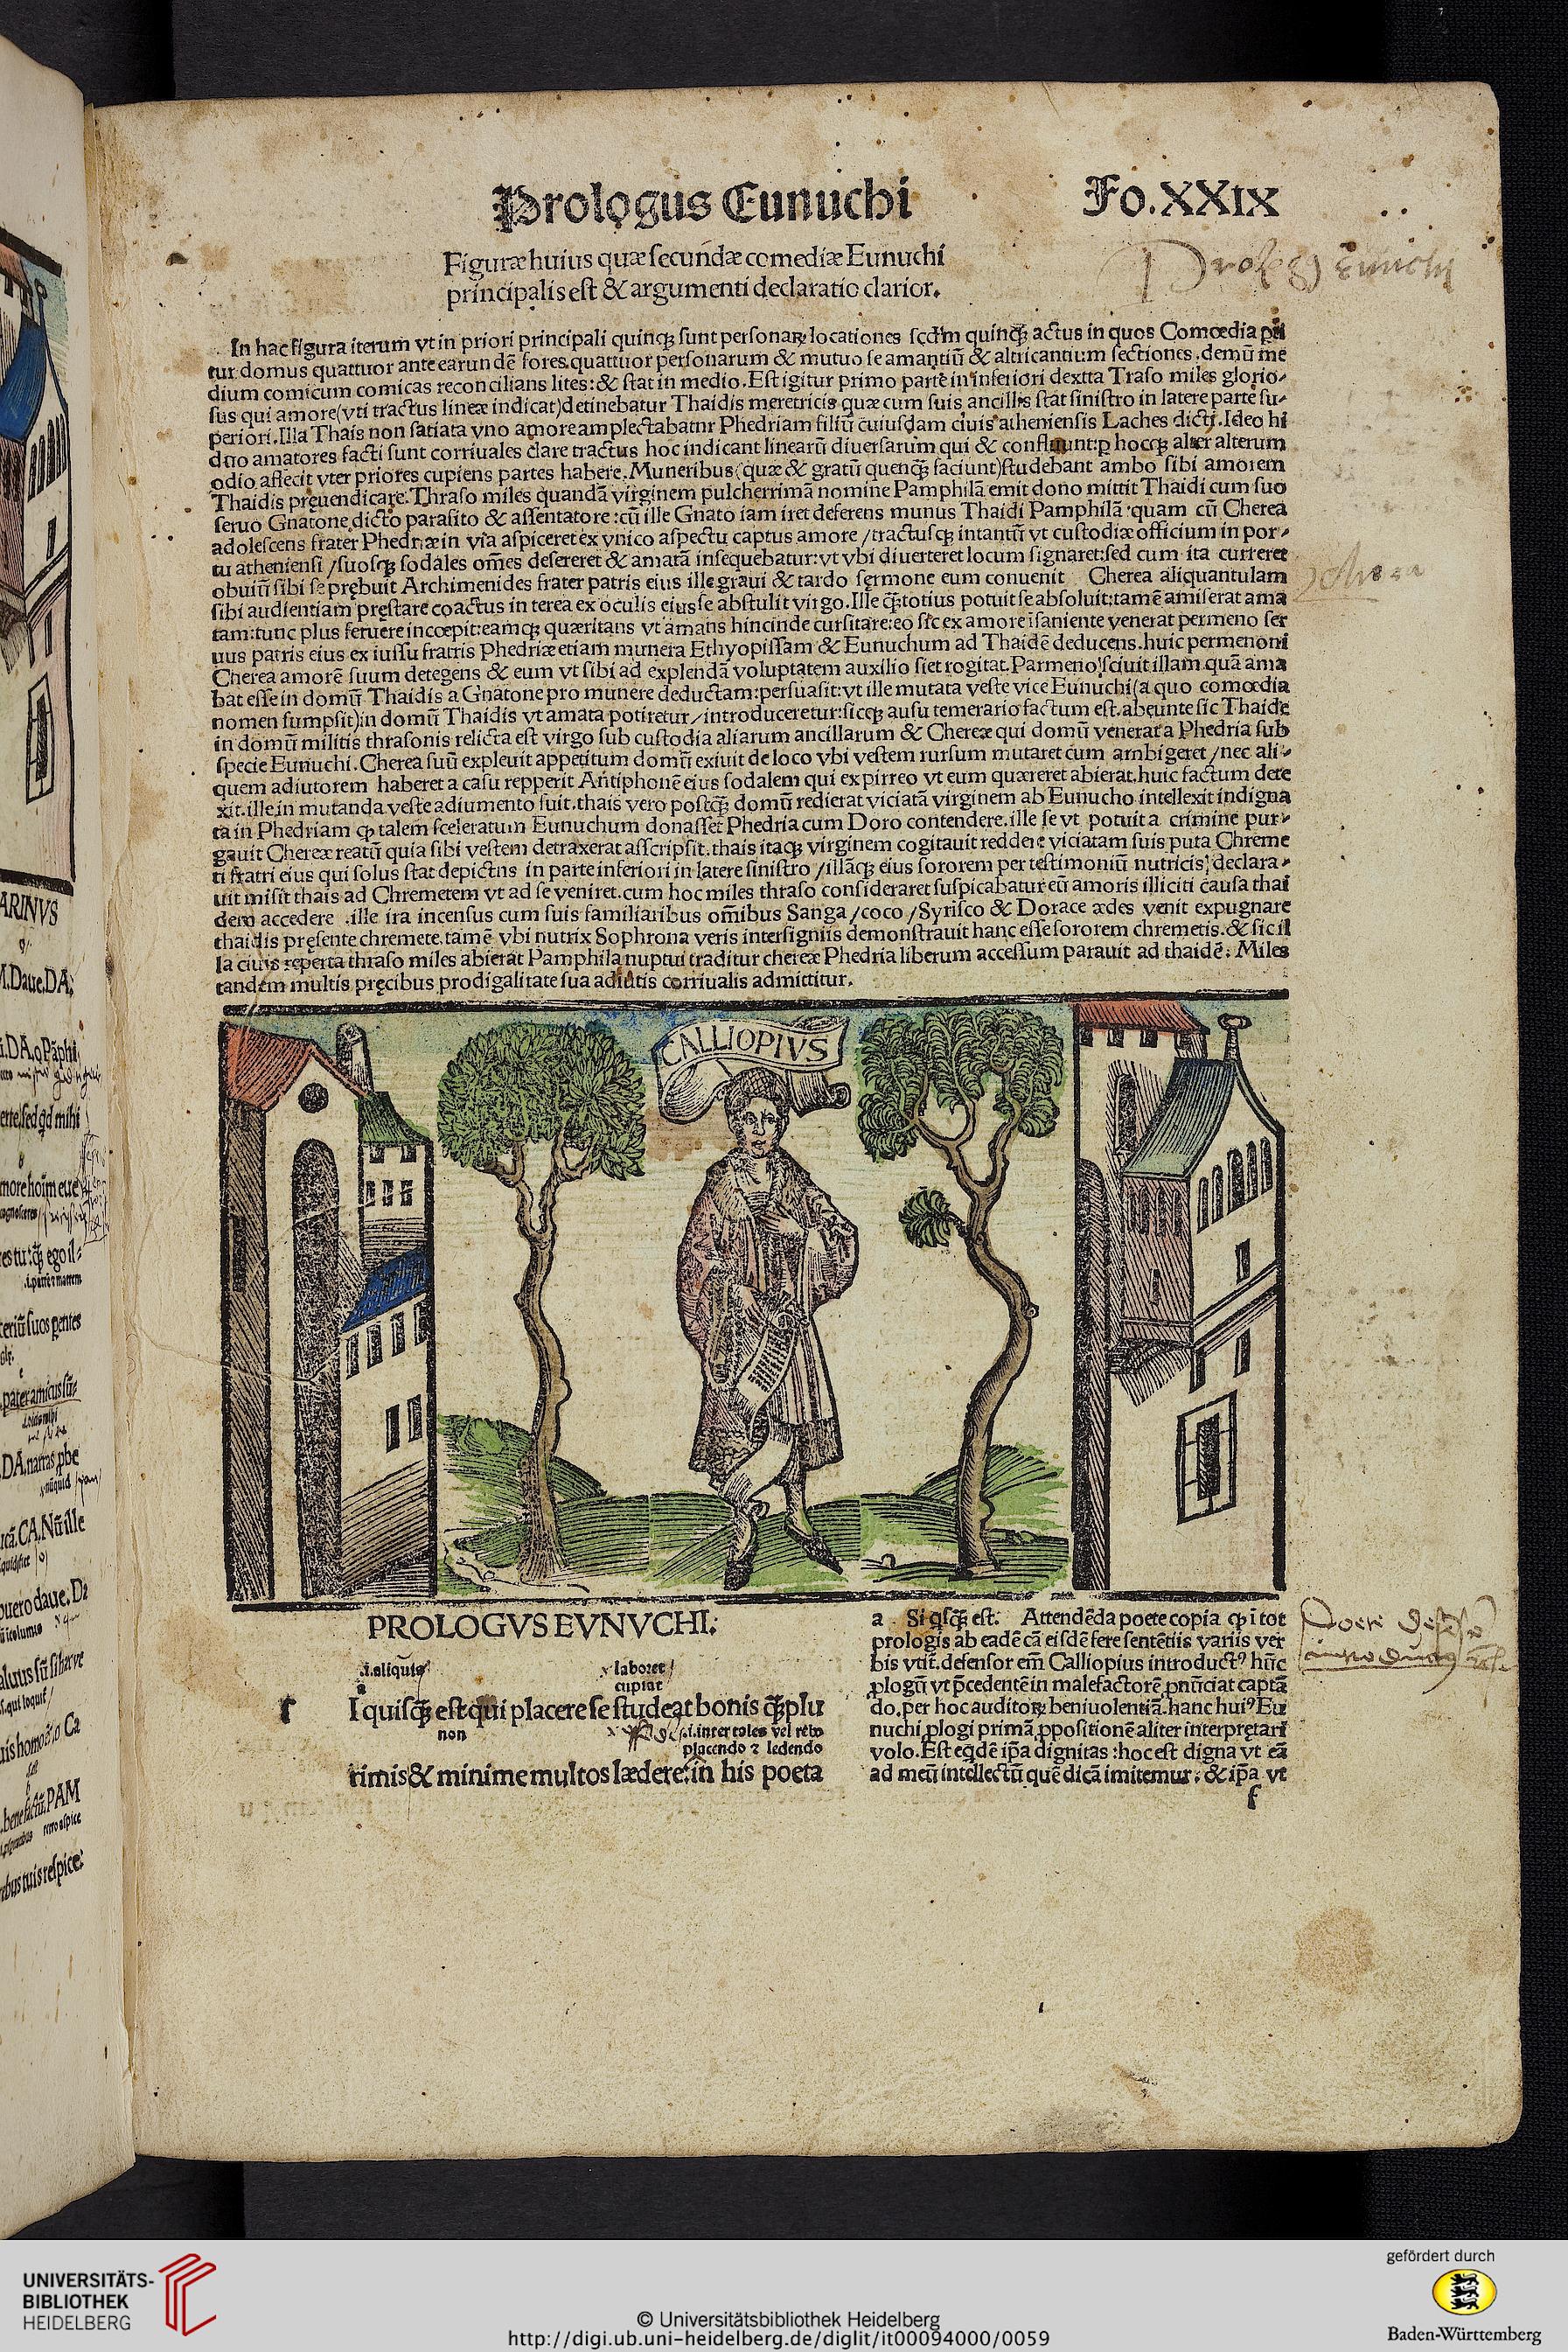 Prologus Eunuchi
Fo.XXIX
Figuræ huius quæ ſecundæ comediæ Eunuchi
principalis eſt & argumenti declaratio clarior.
In hac figura iterum vt in priori principali quinqꝫ ſunt perſonaꝝ locationes ſcďm quinqꝫ actus in quos Comœdia
tur domus quattuor ante earundē fores quattuor perſonarum & mutuo ſe amantiū & altricantium ſectiones. demū me
dium comicum comicas reconcilians lites: & ſtat in medio. Eſt igitur primo parte in inferiori dextta Traſo miles glorio⸗
ſus qui amore (vti tractus lineæ indicat) detinebatur Thaidis meretricis quæ cum ſuis ancillis ſtat ſiniſtro in latere parte ſu⸗
periori. Illa Thais non ſatiata vno amore amplectabatnr Phedriam filiū cuiuſdam ciuis athenienſis Laches dicti. Ideo hi
duo amatores facti ſunt corriuales clare tractus hoc indicant linearū diuerſarum qui & confluunt: ꝑ hocqꝫ alter alterum
odio affecit vter priores cupiens partes habere. Muneribus (quæ & gratū quenqꝫ faciunt) ſtudebant ambo ſibi amorem
Thaidis pręuendicare. Thraſo miles quandā virginem pulcherrimā nomine Pamphilā emit dono mittit Thaidi cum ſuo
ſeruo Gnatone dicto paraſito & aſſentatore: cū ille Gnato iam iret deferens munus Thaidi Pamphilā quam cū Cherea
adoleſcens frater Phedriæ in via aſpiceret ex vnico aſpectu captus amore / tractuſqꝫ intantū vt cuſtodiæ officium in por⸗
tu athenienſi / ſuoſqꝫ ſodales om̄es deſereret & amatā inſequebatur: vt vbi diuerteret locum ſignaret: ſed cum ita curreret
obuiū ſibi ſe prębuit Archimenides frater patris eius ille graui & tardo ſermone eum conuenit Cherea aliquantulam
ſibi audientiam pręſtare coactus in terea ex oculis eius ſe abſtulit virgo. Ille qꝫ totius potuit ſe abſoluit: tamē amiſerat ama
tam: tunc plus feruere incœpit: eamqꝫ quæritans vt amans hincinde curſitare: eo ſic ex amore iſaniente venerat permeno ſer
uus patris eius ex iuſſu fratris Phedriæ etiam munera Ethyopiſſam & Eunuchum ad Thaidē deducens. huic permenoni
Cherea amorē ſuum detegens & eum vt ſibi ad explendā voluptatem auxilio ſiet rogitat. Parmeno ſciuit illam quā ama
bat eſſe in domū Thaidis a Gnatone pro munere deductam: perſuaſit: vt ille mutata veſte vice Eunuchi (a quo comœdia
nomen ſumpſit) in domū Thaidis vt amata potiretur / introduceretur: ſicqꝫ auſu temerario factum eſt. abeunte ſic Thaide
in domū militis thraſonis relicta eſt virgo ſub cuſtodia aliarum ancillarum & Chereæ qui domū venerat a Phedria ſub
ſpecie Eunuchi. Cherea ſuū expleuit appetitum domū exiuit de loco vbi veſtem rurſum mutaret cum ambigeret / nec ali⸗
quem adiutorem haberet a caſu repperit Antiphonē eius ſodalem qui ex pirreo vt eum quæreret abierat. huic factum dete
xit. ille in mutanda veſte adiumento fuit. thais vero poſtqꝫ domū redierat viciatā virginem ab Eunucho intellexit indigna
ta in Phedriam qꝫ talem ſceleratum Eunuchum donaſſet Phedria cum Doro contendere. ille ſe vt potuit a crimine pur⸗
gauit Chereæ reatū quia ſibi veſtem detraxerat aſſcripſit. thais itaqꝫ virginem cogitauit reddere viciatam ſuis puta Chreme
ti fratri eius qui ſolus ſtat depictns in parte inferiori in latere ſiniſtro / illāqꝫ eius ſororem per teſtimoniū nutricis declara⸗
uit miſit thais ad Chremetem vt ad ſe veniret. cum hoc miles thraſo conſideraret ſuſpicabatur eū amoris illiciti cauſa thai
dem accedere. ille ira incenſus cum ſuis familiaribus om̄ibus Sanga / coco / Syriſco & Dorace ædes venit expugnare
thaidis pręſente chremete. tamē vbi nutrix Sophrona veris interſigniis demonſtrauit hanc eſſe ſororem chremetis. & ſic il
la ciuis reperta thraſo miles abierat Pamphila nuptui traditur chereæ Phedria liberum acceſſum parauit ad thaidē. Miles
tandem multis pręcibus prodigalitate ſua adiutis corriualis admittitur.
CALLIOPIVS
PROLOGVS EVNVCHI:
.i.aliquis laboret
a cupiat
ſ I quiſqꝫ eſt qui placere ſe ſtudeat bonis qꝫ plu
non .i. inter tales vel
placendo ⁊ ledendo
rimis & minime multos lædere: in his poeta
a Si qſqꝫ eſt. Attendēda poete copia qꝫ ī tot
prologis ab eadē cā eiſdē fere ſentētiis variis ver
bis vtit̄. defenſor em̄ Calliopius introductꝰ hūc
ꝓlogū vt p̄cedentē in malefactorē ꝓnūciat captā
do, per hoc auditoꝝ beniuolentiā. hanc huiꝰ Eu
nuchi ꝓlogi primā ꝓpoſitionē aliter interpretari
volo. Eſt eqdē ip̄a dignitas: hoc eſt digna vt eā
ad meū intellectū quē dicā imitemur. & ip̄a vt
f
ARINVS
UNIVERSITÄTS-
BIBLIOTHEK
HEIDELBERG
© Universitätsbibliothek Heidelberg
http://digi.ub.uni-heidelberg.de/diglit/it00094000/0059
gefördert durch
Baden-Württemberg